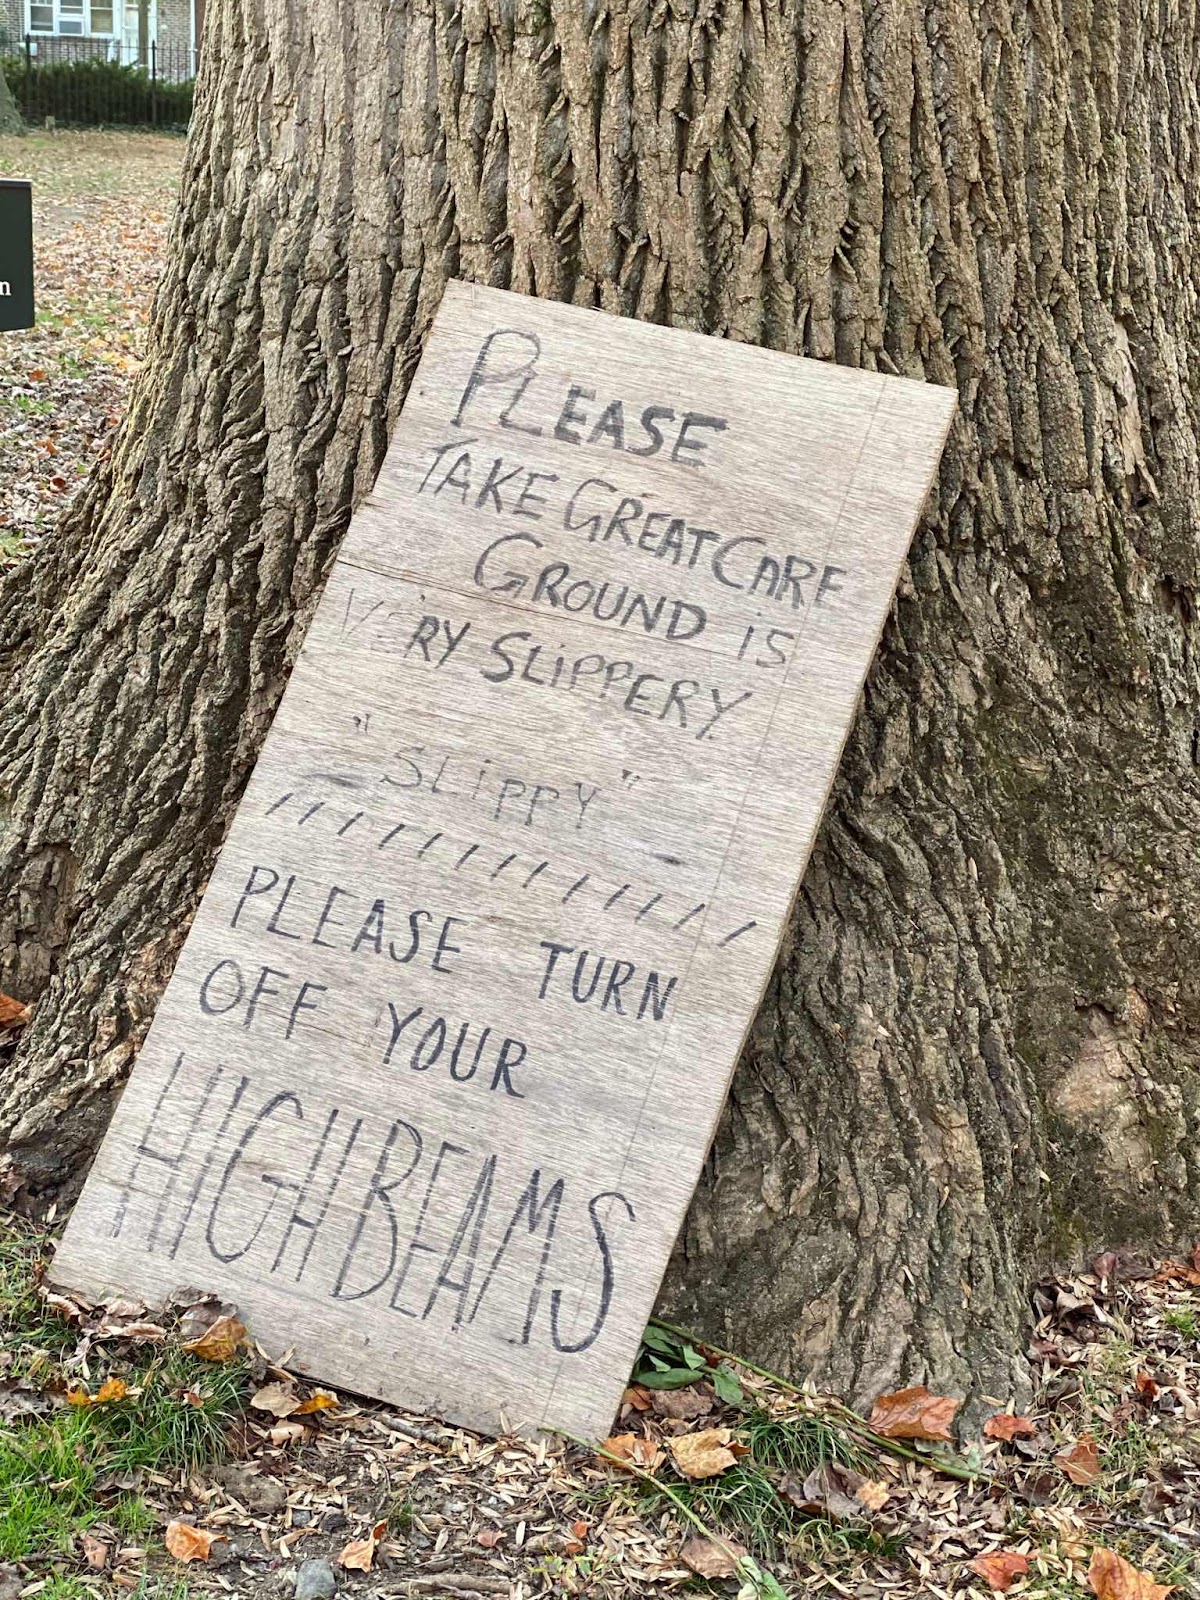 n
PLEASE
TAKE GREAT CARE
GROUND iS
VERY SLiPPERY
"SLiPPY"
/////////////
PLEASE TURN
OFF YOUR
HIGH BEAMS